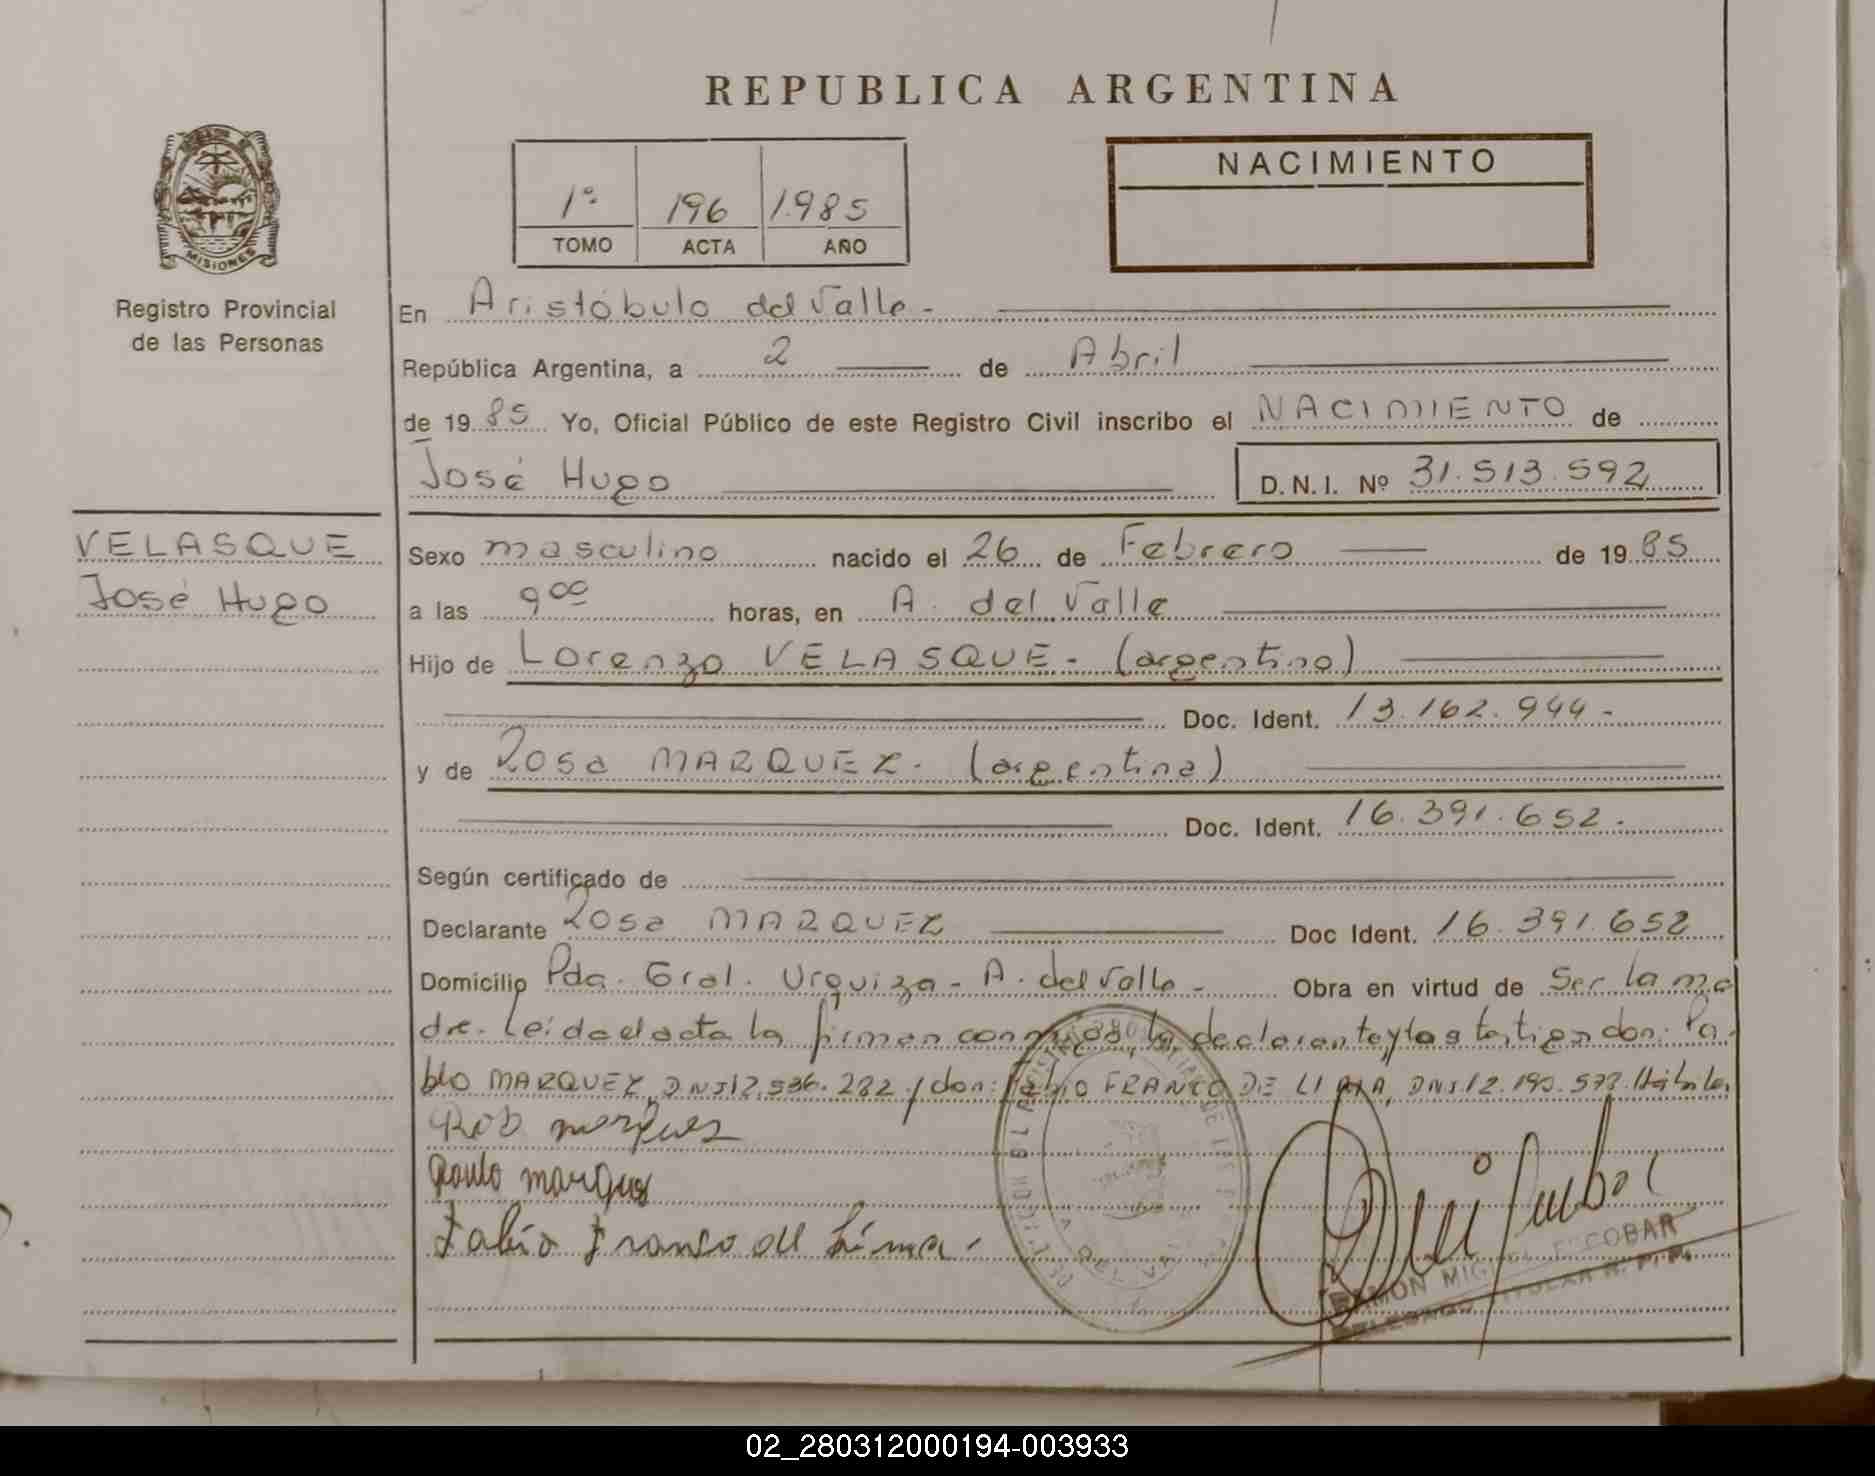 REPUBLICA ARGENTINA
MISIONES
Registro Provincial
de las Personas
1º 196 1.985
TOMO ACTA AÑO
NACIMIENTO
En Aristóbulo del Valle -
República Argentina, a 2 de Abril
de 19 85 Yo, Oficial Público de este Registro Civil inscribo el NACIMIENTO de
José Hugo D.N.I. Nº 31.513.592
VELASQUE
José Hugo
Sexo masculino nacido el 26 de Febrero de 19 85
a las 9 00 horas, en A. del Valle
Hijo de Lorenzo VELASQUE - (argentino)
Doc. Ident. 13.162.944 -
y de Rosa MARQUEZ. (argentina)
Doc. Ident. 16.391.652 -
Según certificado de
Declarante Rosa MARQUEZ Doc Ident. 16.391.652
Domicilio Pda. Gral. Urquiza - A. del Valle - Obra en virtud de Ser la ma
dre. Leída el acta la firman conmigo la declarante y los testigos don: Pa-
blo MARQUEZ, DNI 12.536.282 y don: Fabio FRANCO DE LIMA, DNI 12.190.573. Hábiles
Paulo marques
Fabio Franco de Lima.
RAMON MIGUEL ESCOBAR
DELEGADO TITULAR R. P. P.
02_280312000194-003933